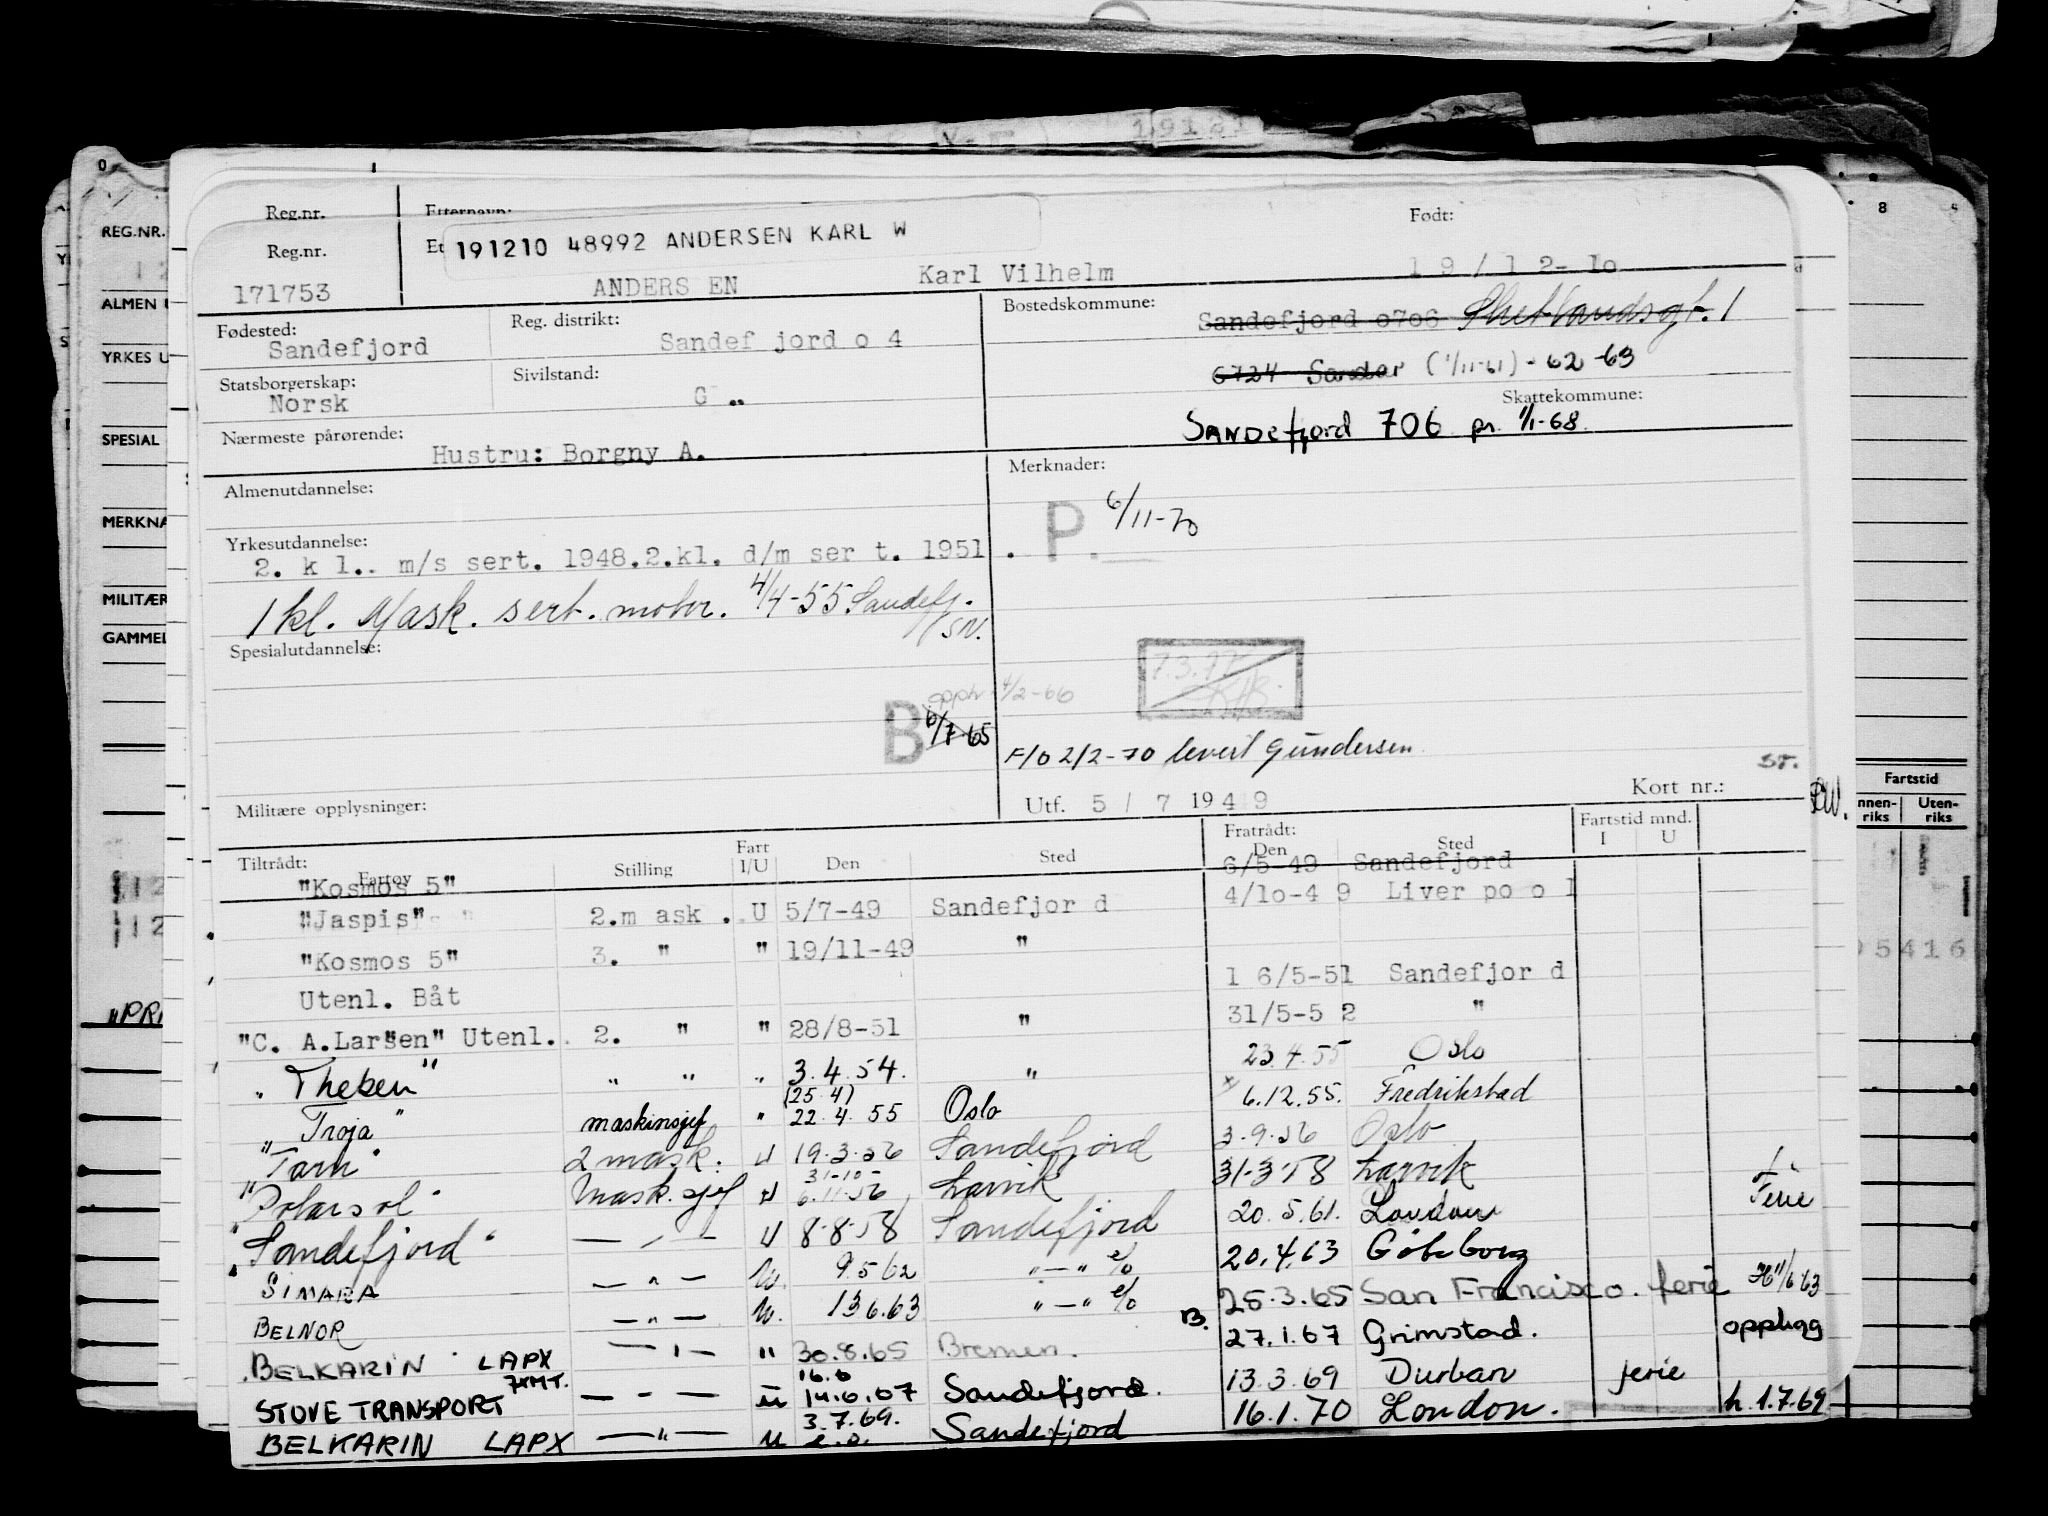 1912
O
8
REG.NR.
Reg.nr.
Etternavn:
Født:
Reg.nr.
Et 191210 48992 ANDERSEN KARL W
171753 ANDERS EN Karl Vilhelm 1 9 / 1 2- 1o
ALMEN
Fødested: Reg. distrikt: Bostedskommune:
Sandefjord Sandef jord o 4 Sandefjord o706 Shetlandsgt. 1
YRKES U
Statsborgerskap: Sivilstand:
Norsk G „ 0724 Sandar (1/11-61) - 62 -63
Skattekommune:
SPESIAL
Nærmeste pårørende: SANDefjord 706 pr. 1/1-68.
Hustru: Borgny A.
Almenutdannelse: Merknader:
P. 6/11-70
MERKNA
Yrkesutdannelse:
2. k l.. m/s sert. 1948.2.kl. d/m ser t. 1951 .
MILITÆR
1 kl. Mask. sert. motor. 4/4-55 Sandefj.
SN.
GAMMEL
Spesialutdannelse:
7.3.77
opph 4/2-66
B 6/7-65
F/O 2/2-70 levert Gundersen
Militære opplysninger: Utf. 5 / 7 19 49 Kort nr.:
Fartstid
Uten-
riks riks
Tiltrådt: Fratrådt: Fartstid mnd.
Fartøy Stilling Fart I/U Den Sted Den Sted I U
"Kosmos 5" 6/5-49 Sandefjord
"Jaspis" 2.m ask . U 5/7-49 Sandefjor d 4/1o-4 9 Liver po o l
"Kosmos 5" 3. " " 19/11-49 "
Utenl. Båt 1 6/5-51 Sandefjor d
"C. A.Larsen" Utenl. 2. " " 28/8-51 " 31/5-5 2 "
"Theben" " " " 3.4.54. " 23.4.55 Oslo
(25.4)
"Troja" maskinsjef " 22.4.55 Oslo 6.12.55. Fredrikstad
"Tarn" 2 mask. U 19.3.56 Sandefjord 3.9.56 Oslo
31-10-
"Polarsol" Mask.sjef U 6.11.56 Larvik 31-3-58 Larvik
"Sandefjord" — " — U 8-8-58 Sandefjord 20.5.61. London Ferie
SIMARA — " — U. 9.5 62 " — " e/o 20.4.63 Göteborg
BELNOR — " — U. 13 6.63 " — " e/o 25.3.65 San Francisco. ferie 11/6-63
BELKARIN LAPX — " — " 30.8.65 Bremen. B. 27.1.67 Grimstad. opplegg
16.6
STOVE TRANSPORT — " — u 14.6.67 Sandefjord. 13.3.69 Durban ferie
BELKARIN LAPX — " — u 3.7.69. e.o. Sandefjord 16.1.70 London. h. 1.7.69
5416